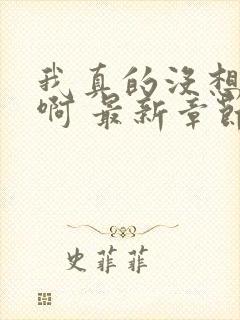 我真的没想
啊 最新章节
史菲菲